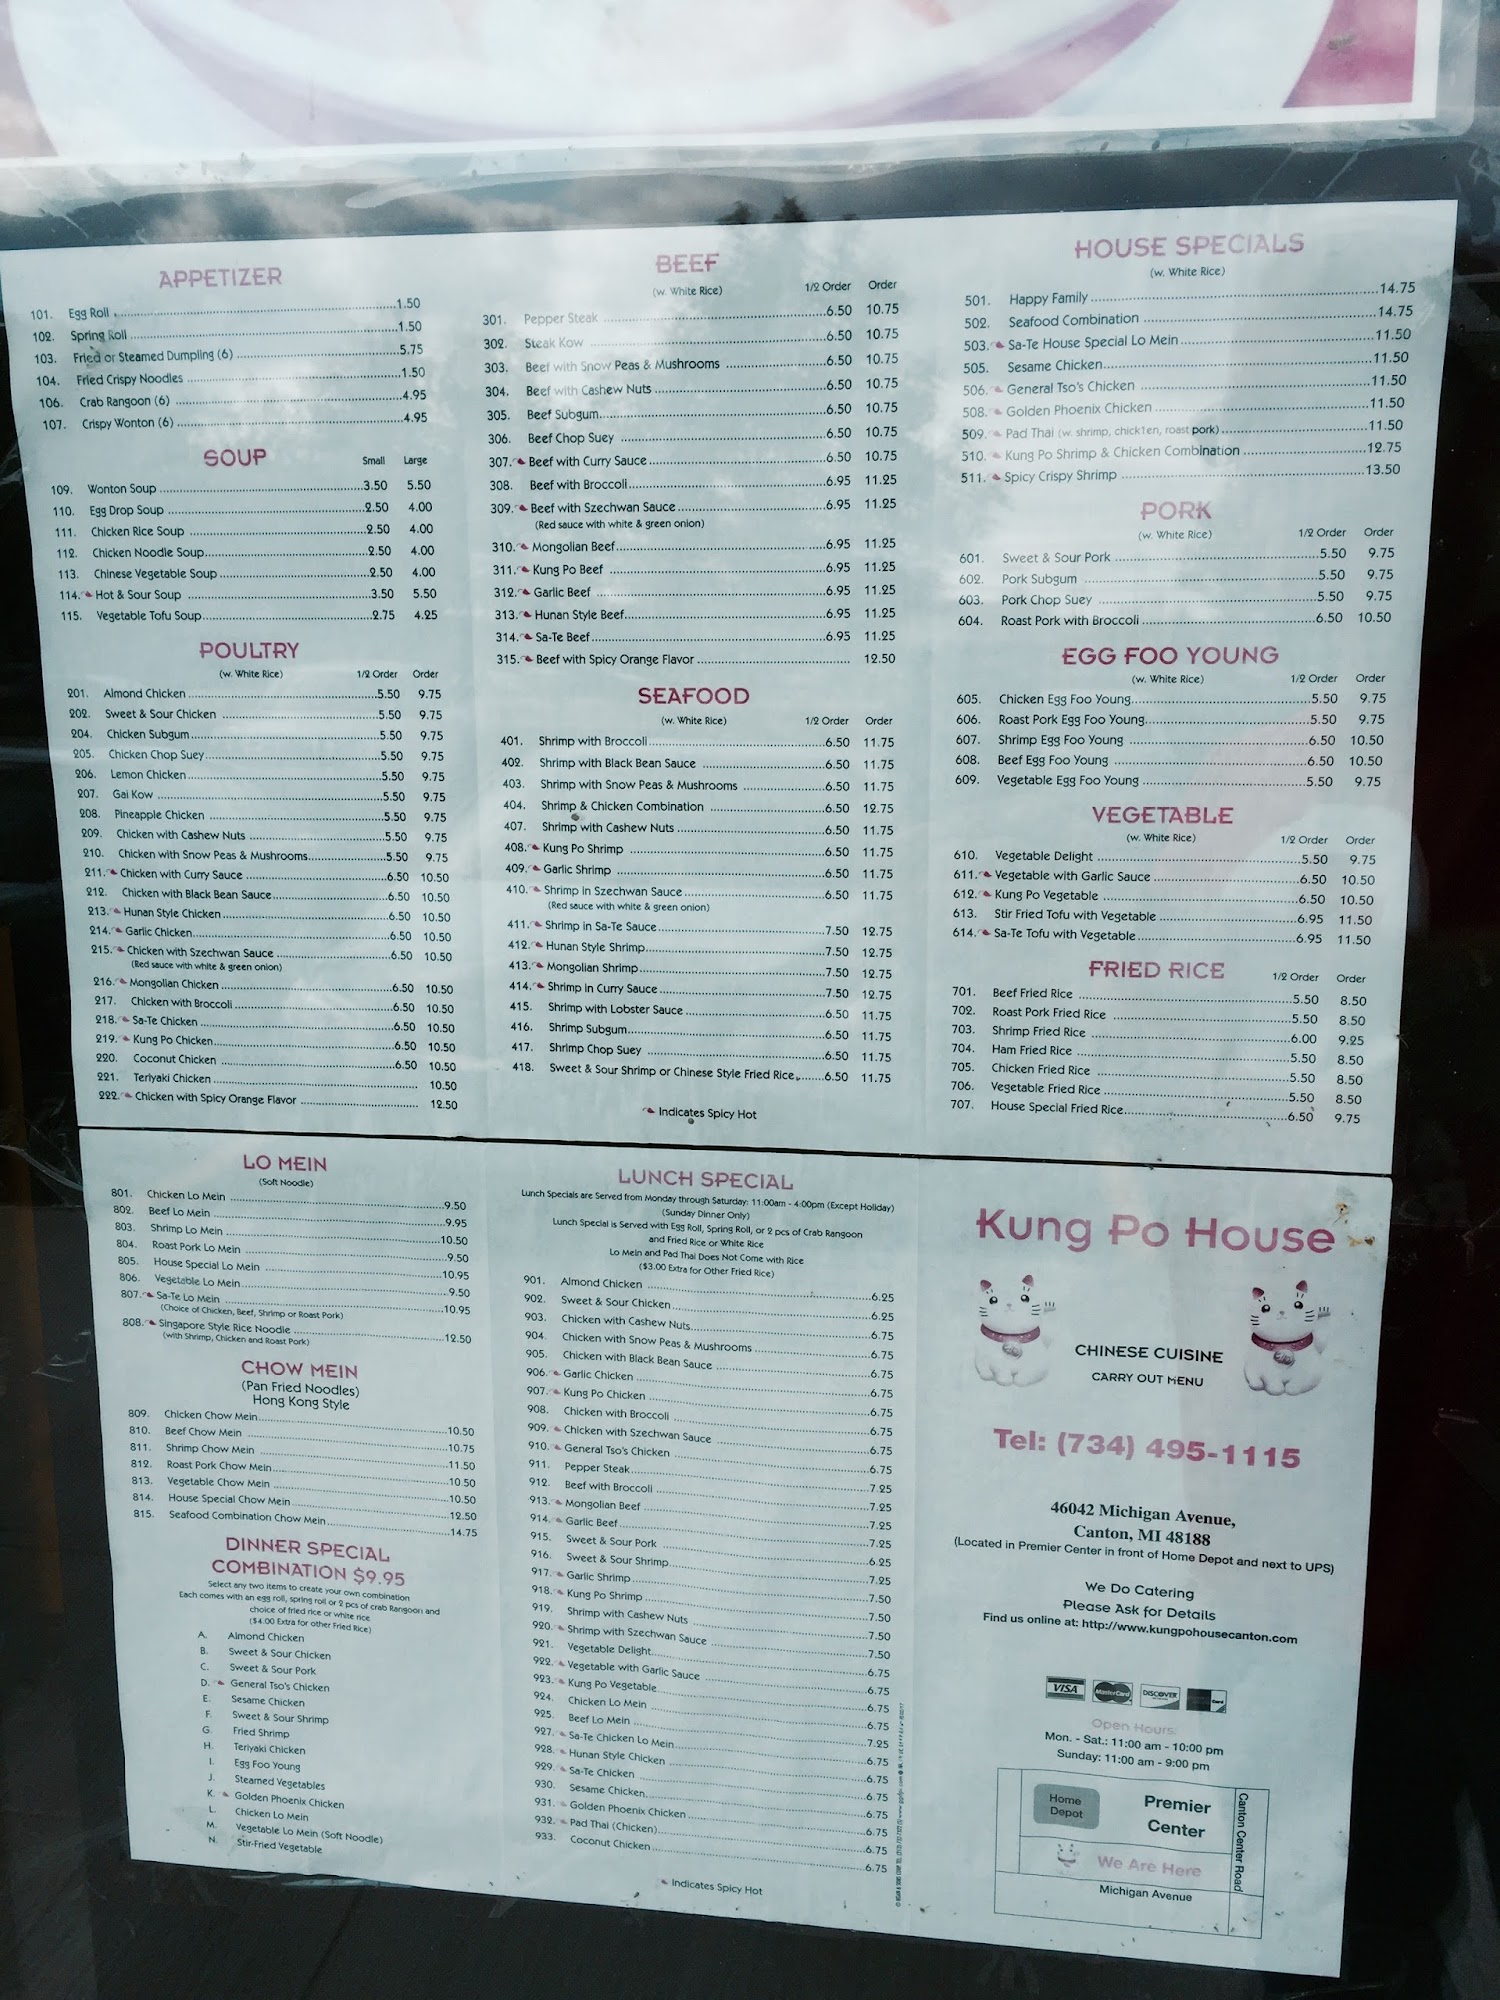 APPETIZER
101. Egg Roll 1.50
102. Spring Roll 1.50
103. Fried or Steamed Dumpling (6) 5.75
104. Fried Crispy Noodles 1.50
106. Crab Rangoon (6) 4.95
107. Crispy Wonton (6) 4.95
SOUP Small Large
109. Wonton Soup 3.50 5.50
110. Egg Drop Soup 2.50 4.00
111. Chicken Rice Soup 2.50 4.00
112. Chicken Noodle Soup 2.50 4.00
113. Chinese Vegetable Soup 2.50 4.00
114. Hot & Sour Soup 3.50 5.50
115. Vegetable Tofu Soup 2.75 4.25
POULTRY
(w. White Rice) 1/2 Order Order
201. Almond Chicken 5.50 9.75
202. Sweet & Sour Chicken 5.50 9.75
204. Chicken Subgum 5.50 9.75
205. Chicken Chop Suey 5.50 9.75
206. Lemon Chicken 5.50 9.75
207. Gai Kow 5.50 9.75
208. Pineapple Chicken 5.50 9.75
209. Chicken with Cashew Nuts 5.50 9.75
210. Chicken with Snow Peas & Mushrooms 5.50 9.75
211. Chicken with Curry Sauce 6.50 10.50
212. Chicken with Black Bean Sauce 6.50 10.50
213. Hunan Style Chicken 6.50 10.50
214. Garlic Chicken 6.50 10.50
215. Chicken with Szechwan Sauce 6.50 10.50
(Red sauce with white & green onion)
216. Mongolian Chicken 6.50 10.50
217. Chicken with Broccoli 6.50 10.50
218. Sa-Te Chicken 6.50 10.50
219. Kung Po Chicken 6.50 10.50
220. Coconut Chicken 6.50 10.50
221. Teriyaki Chicken 10.50
222. Chicken with Spicy Orange Flavor 12.50
BEEF
(w. White Rice) 1/2 Order Order
301. Pepper Steak 6.50 10.75
302. Steak Kow 6.50 10.75
303. Beef with Snow Peas & Mushrooms 6.50 10.75
304. Beef with Cashew Nuts 6.50 10.75
305. Beef Subgum 6.50 10.75
306. Beef Chop Suey 6.50 10.75
307. Beef with Curry Sauce 6.50 10.75
308. Beef with Broccoli 6.95 11.25
309. Beef with Szechwan Sauce 6.95 11.25
(Red sauce with white & green onion)
310. Mongolian Beef 6.95 11.25
311. Kung Po Beef 6.95 11.25
312. Garlic Beef 6.95 11.25
313. Hunan Style Beef 6.95 11.25
314. Sa-Te Beef 6.95 11.25
315. Beef with Spicy Orange Flavor 12.50
SEAFOOD
(w. White Rice) 1/2 Order Order
401. Shrimp with Broccoli 6.50 11.75
402. Shrimp with Black Bean Sauce 6.50 11.75
403. Shrimp with Snow Peas & Mushrooms 6.50 11.75
404. Shrimp & Chicken Combination 6.50 12.75
407. Shrimp with Cashew Nuts 6.50 11.75
408. Kung Po Shrimp 6.50 11.75
409. Garlic Shrimp 6.50 11.75
410. Shrimp in Szechwan Sauce 6.50 11.75
(Red sauce with white & green onion)
411. Shrimp in Sa-Te Sauce 7.50 12.75
412. Hunan Style Shrimp 7.50 12.75
413. Mongolian Shrimp 7.50 12.75
414. Shrimp in Curry Sauce 7.50 12.75
415. Shrimp with Lobster Sauce 6.50 11.75
416. Shrimp Subgum 6.50 11.75
417. Shrimp Chop Suey 6.50 11.75
418. Sweet & Sour Shrimp or Chinese Style Fried Rice 6.50 11.75
Indicates Spicy Hot
HOUSE SPECIALS
(w. White Rice)
501. Happy Family 14.75
502. Seafood Combination 14.75
503. Sa-Te House Special Lo Mein 11.50
505. Sesame Chicken 11.50
506. General Tso's Chicken 11.50
508. Golden Phoenix Chicken 11.50
509. Pad Thai (w. shrimp, chick1en, roast pork) 11.50
510. Kung Po Shrimp & Chicken Combination 12.75
511. Spicy Crispy Shrimp 13.50
PORK
(w. White Rice) 1/2 Order Order
601. Sweet & Sour Pork 5.50 9.75
602. Pork Subgum 5.50 9.75
603. Pork Chop Suey 5.50 9.75
604. Roast Pork with Broccoli 6.50 10.50
EGG FOO YOUNG
(w. White Rice) 1/2 Order Order
605. Chicken Egg Foo Young 5.50 9.75
606. Roast Pork Egg Foo Young 5.50 9.75
607. Shrimp Egg Foo Young 6.50 10.50
608. Beef Egg Foo Young 6.50 10.50
609. Vegetable Egg Foo Young 5.50 9.75
VEGETABLE
(w. White Rice) 1/2 Order Order
610. Vegetable Delight 5.50 9.75
611. Vegetable with Garlic Sauce 6.50 10.50
612. Kung Po Vegetable 6.50 10.50
613. Stir Fried Tofu with Vegetable 6.95 11.50
614. Sa-Te Tofu with Vegetable 6.95 11.50
FRIED RICE 1/2 Order Order
701. Beef Fried Rice 5.50 8.50
702. Roast Pork Fried Rice 5.50 8.50
703. Shrimp Fried Rice 6.00 9.25
704. Ham Fried Rice 5.50 8.50
705. Chicken Fried Rice 5.50 8.50
706. Vegetable Fried Rice 5.50 8.50
707. House Special Fried Rice 6.50 9.75
LO MEIN
(Soft Noodle)
801. Chicken Lo Mein 9.50
802. Beef Lo Mein 9.95
803. Shrimp Lo Mein 10.50
804. Roast Pork Lo Mein 9.50
805. House Special Lo Mein 10.95
806. Vegetable Lo Mein 9.50
807. Sa-Te Lo Mein 10.95
(Choice of Chicken, Beef, Shrimp or Roast Pork)
808. Singapore Style Rice Noodle 12.50
(with Shrimp, Chicken and Roast Pork)
CHOW MEIN
(Pan Fried Noodles)
Hong Kong Style
809. Chicken Chow Mein 10.50
810. Beef Chow Mein 10.75
811. Shrimp Chow Mein 11.50
812. Roast Pork Chow Mein 10.50
813. Vegetable Chow Mein 10.50
814. House Special Chow Mein 12.50
815. Seafood Combination Chow Mein 14.75
DINNER SPECIAL
COMBINATION $9.95
Select any two items to create your own combination
Each comes with an egg roll, spring roll or 2 pcs of crab Rangoon and
choice of fried rice or white rice
($4.00 Extra for other Fried Rice)
A. Almond Chicken
B. Sweet & Sour Chicken
C. Sweet & Sour Pork
D. General Tso's Chicken
E. Sesame Chicken
F. Sweet & Sour Shrimp
G. Fried Shrimp
H. Teriyaki Chicken
I. Egg Foo Young
J. Steamed Vegetables
K. Golden Phoenix Chicken
L. Chicken Lo Mein
M. Vegetable Lo Mein (Soft Noodle)
N. Stir-Fried Vegetable
LUNCH SPECIAL
Lunch Specials are Served from Monday through Saturday: 11:00am - 4:00pm (Except Holiday)
(Sunday Dinner Only)
Lunch Special is Served with Egg Roll, Spring Roll, or 2 pcs of Crab Rangoon
and Fried Rice or White Rice
Lo Mein and Pad Thai Does Not Come with Rice
($3.00 Extra for Other Fried Rice)
901. Almond Chicken 6.25
902. Sweet & Sour Chicken 6.25
903. Chicken with Cashew Nuts 6.75
904. Chicken with Snow Peas & Mushrooms 6.75
905. Chicken with Black Bean Sauce 6.75
906. Garlic Chicken 6.75
907. Kung Po Chicken 6.75
908. Chicken with Broccoli 6.75
909. Chicken with Szechwan Sauce 6.75
910. General Tso's Chicken 6.75
911. Pepper Steak 7.25
912. Beef with Broccoli 7.25
913. Mongolian Beef 7.25
914. Garlic Beef 7.25
915. Sweet & Sour Pork 6.25
916. Sweet & Sour Shrimp 7.25
917. Garlic Shrimp 7.50
918. Kung Po Shrimp 7.50
919. Shrimp with Cashew Nuts 7.50
920. Shrimp with Szechwan Sauce 7.50
921. Vegetable Delight 6.75
922. Vegetable with Garlic Sauce 6.75
923. Kung Po Vegetable 6.75
924. Chicken Lo Mein 6.75
925. Beef Lo Mein 7.25
927. Sa-Te Chicken Lo Mein 6.75
928. Hunan Style Chicken 6.75
929. Sa-Te Chicken 6.75
930. Sesame Chicken 6.75
931. Golden Phoenix Chicken 6.75
932. Pad Thai (Chicken) 6.75
933. Coconut Chicken 6.75
Indicates Spicy Hot
Kung Po House
CHINESE CUISINE
CARRY OUT MENU
Tel: (734) 495-1115
46042 Michigan Avenue,
Canton, MI 48188
(Located in Premier Center in front of Home Depot and next to UPS)
We Do Catering
Please Ask for Details
Find us online at: http://www.kungpohousecanton.com
VISA MasterCard DISCOVER
Open Hours:
Mon. - Sat.: 11:00 am - 10:00 pm
Sunday: 11:00 am - 9:00 pm
Home Depot
Premier Center
Canton Center Road
We Are Here
Michigan Avenue